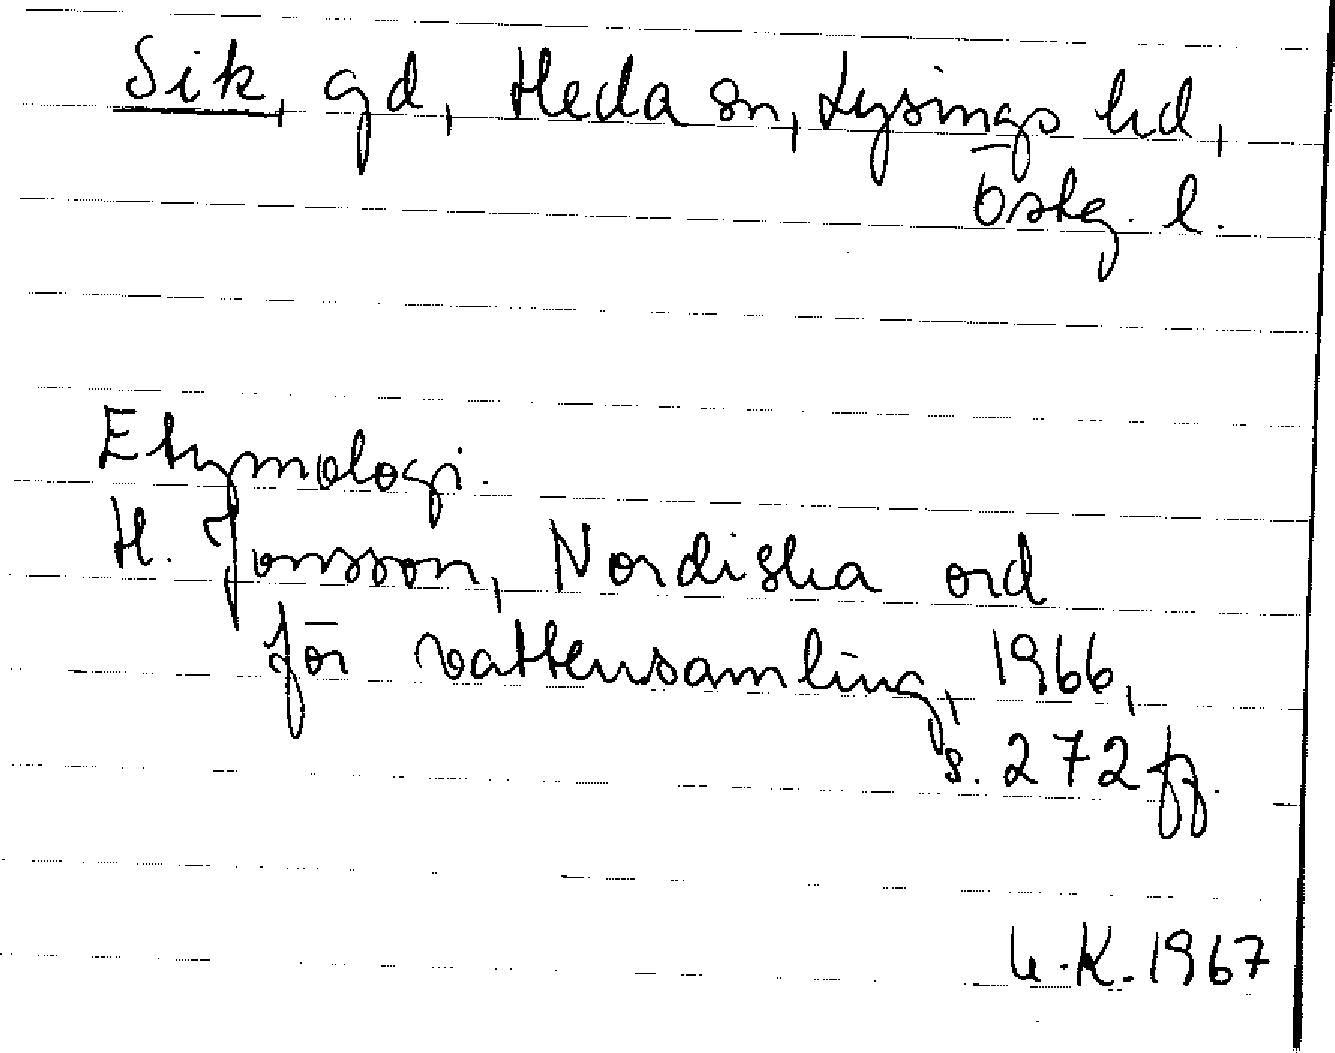 Sik, gd, Heda sn, Lysings hd,
Östg. l.
Etymologi.
H. Jonsson, Nordiska ord
för vattensamling, 1966,
s. 272 ff.
K. 1967